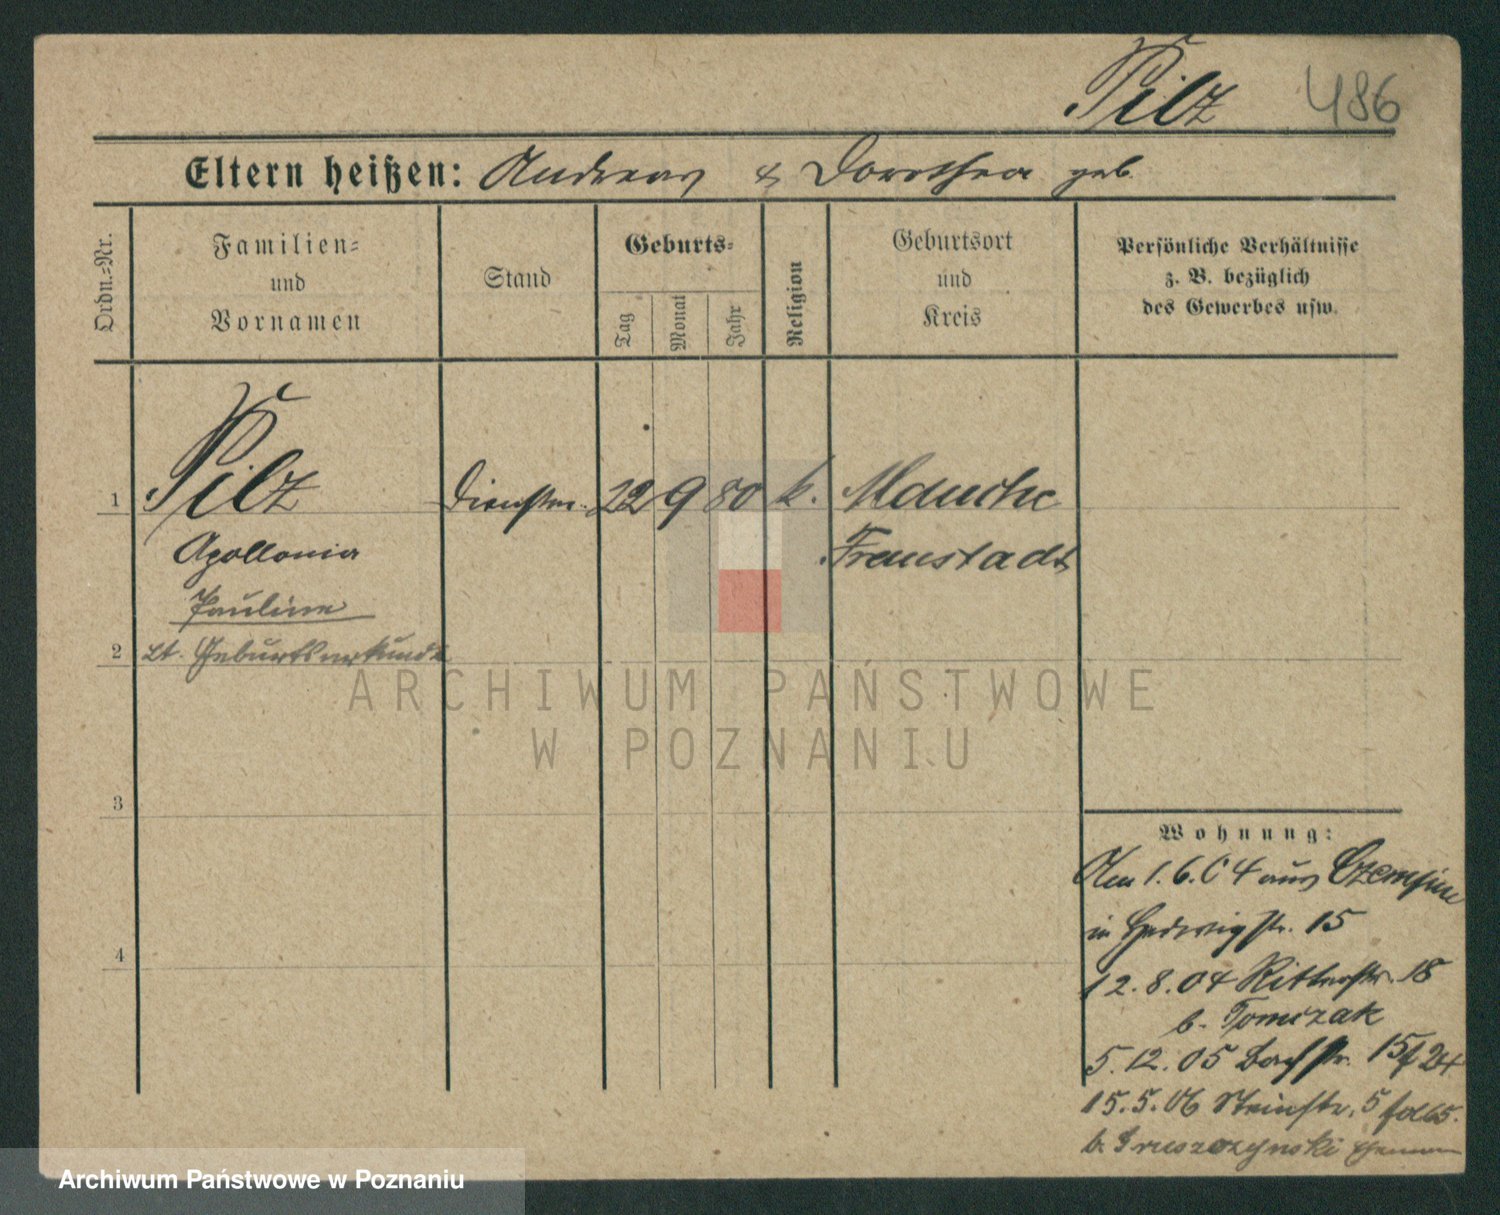 Pilz 486
Eltern heißen: Andreas & Dorothea geb.
Ordn.=Nr.
Familien=
und
Vornamen
Stand
Geburts=
Tag
Monat
Jahr
Religion
Geburtsort
und
Kreis
Persönliche Verhältnisse
z. B. bezüglich
des Gewerbes usw.
1 Pilz Dienstm. 22 9 80 k. Mauche
Apollonia Fraustadt
Pauline
2 lt. Geburtsurkunde
ARCHIWUM PAŃSTWOWE
W POZNANIU
3
Wohnung:
Am 1.6.04 aus Czempin
in Hedwigstr. 15
4
12.8.04 Ritterstr. 18
b. Tomczak
5.12.05 Bachstr. 15
15.5.06 Steinstr. 5
b. Gruszczynski
Archiwum Państwowe w Poznaniu